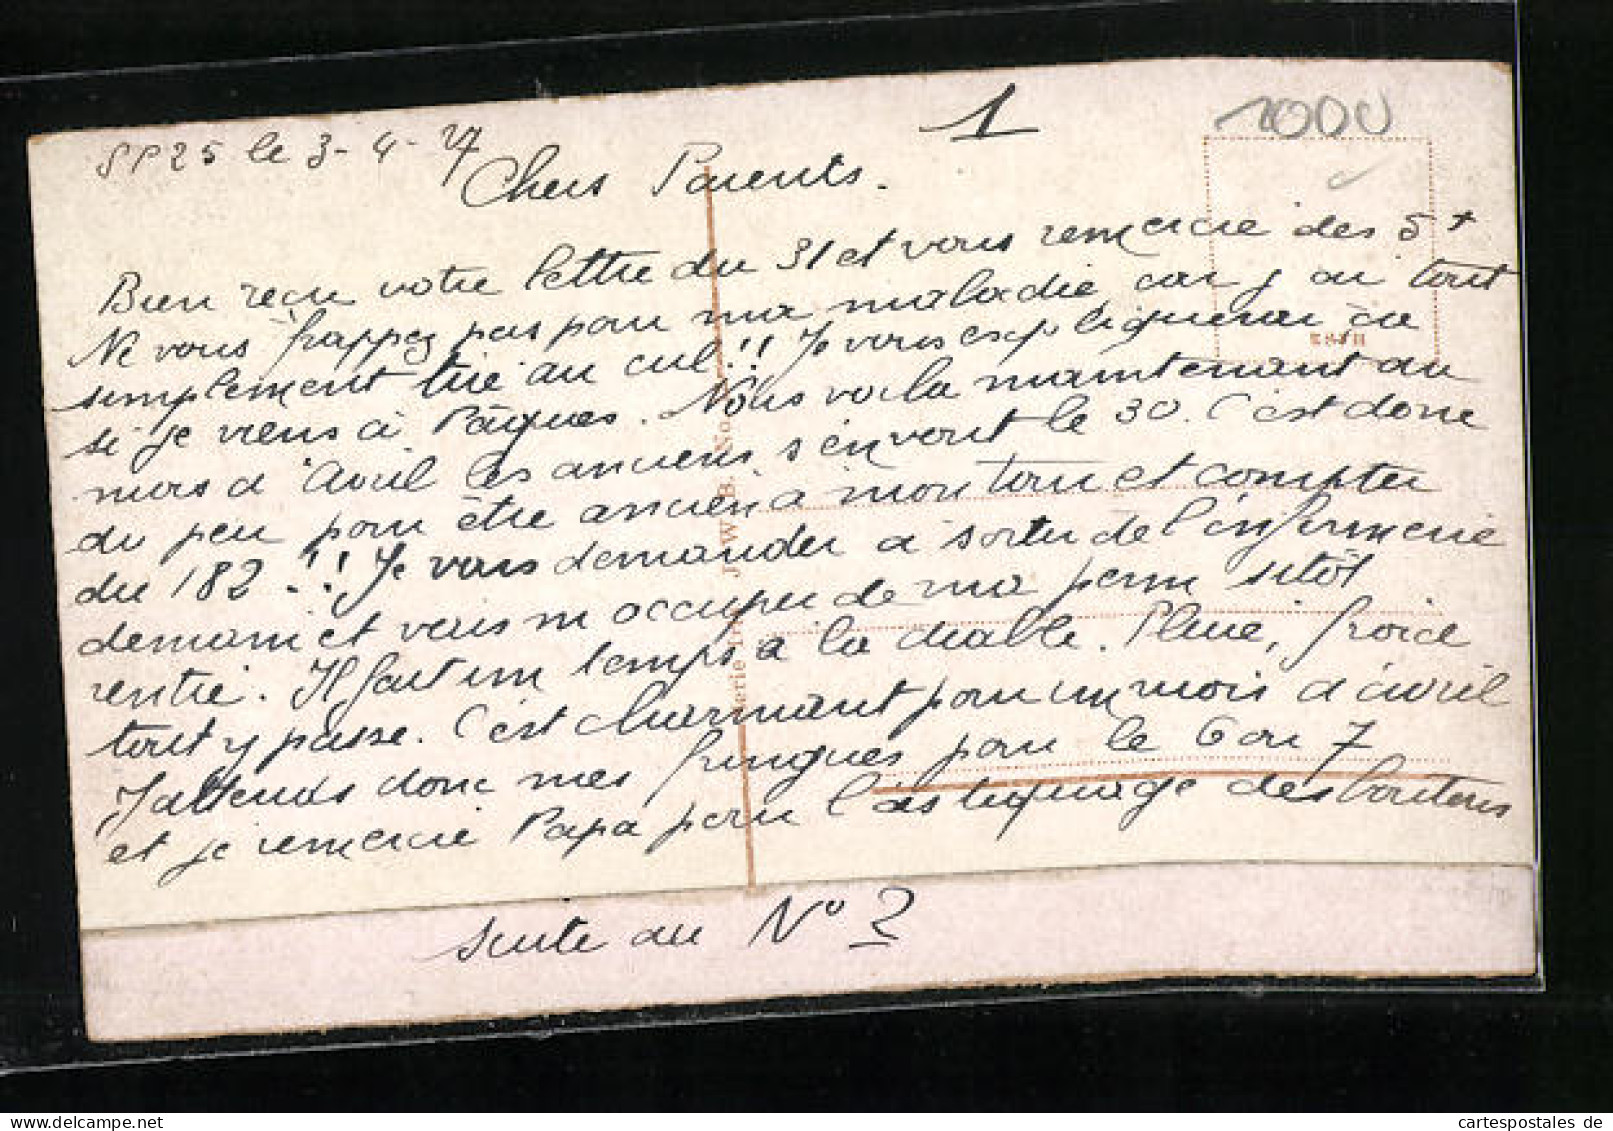 1
1000
SP 25 le 3-4-27
Chers Parents.
Bien reçu votre lettre du 31 et vous remercie des 5 +
Ne vous frappez pas pour ma maladie car j'ai tout
simplement tiré au cul!! Je vous expliquerai ça
si je viens à Pâques. Nous voila maintenant au
mois d'avril les anciens s'en vont le 30. C'est donc
du peu pour être ancien à mon tour et compter
du 182..!! Je vais demander à sortir de l'infirmerie
demain et vais m'occuper de ma perm sitôt
rentré. Il fait un temps à la diable. Pluie, froid
tout y passe. C'est charmant pour un mois d'avril
J'attends donc mes fringues pour le 6 ou 7
et je remercie Papa pour l'astiquage des boutons
suite au N° 2
J. W. B. No.
cartespostales de